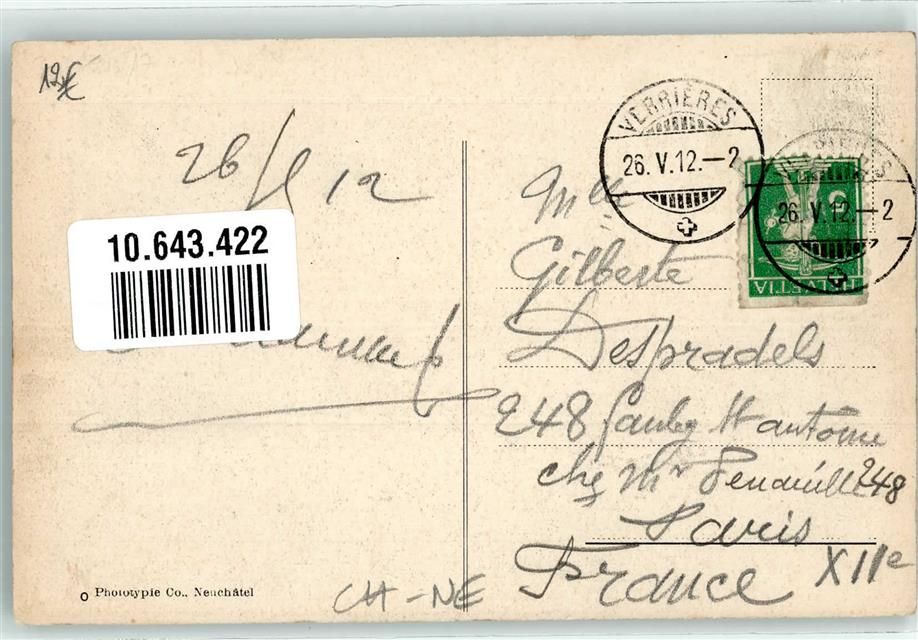 12€
26/5 12
10.643.422
VERRIÈRES
26. V. 12.–2
26. V. 12–2
HELVETIA
Mlle
Gilberte
Despradels
248 faubg St antoine
chez Mr 248
Paris
XIIe
France
Phototypie Co., Neuchâtel
CH-NE